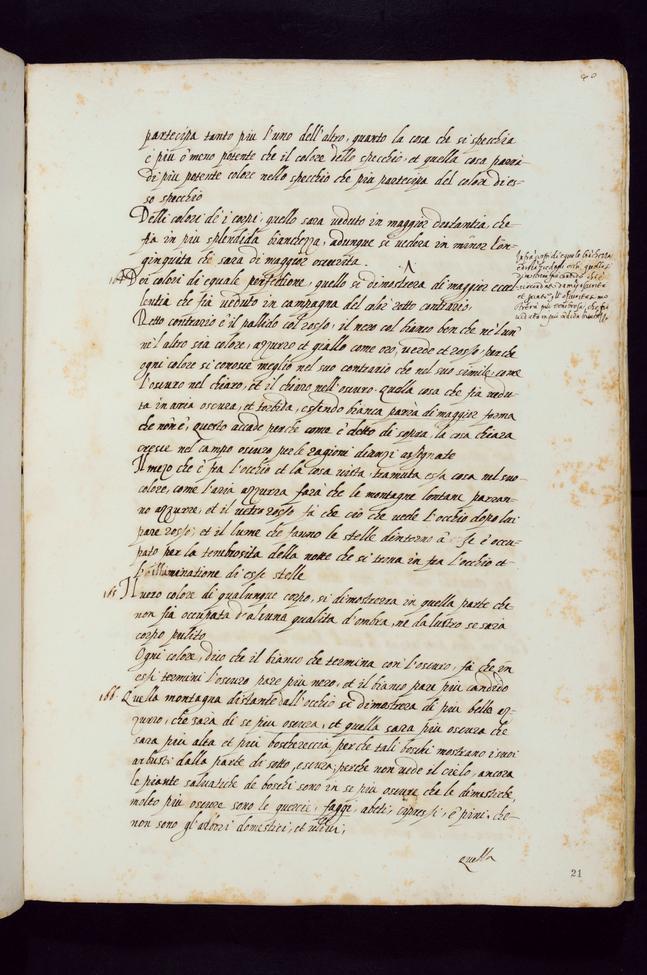 40
partecipa tanto piu l'uno dell'altro, quanto la cosa che si specchia
è piu ò meno potente che il colore dello specchio, et quella cosa parrà
di piu potente colore nello specchio che piu partecipa del colore di es-
so specchio
Delli colori de i corpi, quello sara veduto in maggior distantia, che
fia in piu splendida bianchezza, adunque si vedera in minor lon-
ginquita che sara di maggior oscurita.
Doi colori di equale perfettione, quello si dimostrera di maggior eccel-
lentia che fia veduto in campagna del color retto contrario,
Retto contrario è il pallido col rosso, il nero col bianco ben che nè l'un
nè l'altro sia colore, azzurro et giallo come oro, verde et rosso perche
ogni colore si conosce meglio nel suo contrario che nel suo simile, come
l'oscuro nel chiaro, et il chiaro nell'oscuro. Quella cosa che fia vedu-
ta in aria oscura, et torbida, essendo bianca parra di maggior forma
che non è, questo accade perche come è detto di sopra, la cosa chiara
cresce nel campo oscuro per le ragioni dianzi assignate
Il mezo che è fra l'occhio et la cosa vista, tramuta essa cosa nel suo
colore, come l'aria azzurra farà che le montagne lontane parran-
no azzurre, et il vetro rosso fà che ciò che vede l'occhio dopo lui
pare rosso, et il lume che fanno le stelle dintorno à esse è occu-
pato per la tenebrosita della notte che si trova in fra l'occhio et
l'illuminatione di esse stelle
165 Il vero colore di qualunque corpo, si dimostrerra in quella parte che
non fia occupata d'alcuna qualita d'ombra, nè da lustro se sarà
corpo pulito
Ogni colore, dico che il bianco che termina con l'oscuro, fà che in
essi termini l'oscuro pare piu nero, et il bianco pare piu candido
166 Quella montagna distante dall'occhio si dimostrera di piu bello az-
zurro, che sarà di se piu oscura, et quella sara piu oscura che
sara piu alta et piu boschereccia, perche tali boschi mostrano i suoi
arbusti dalla parte di sotto, oscura, perche non vede il cielo, ancora
le piante salvatiche de boschi sono in se piu oscure che le dimestiche,
molto piu oscure sono le quercie, faggi, abeti, cipressi, è pini, che
non sono gl'arbori domestici, et ulivi,
Quella
21